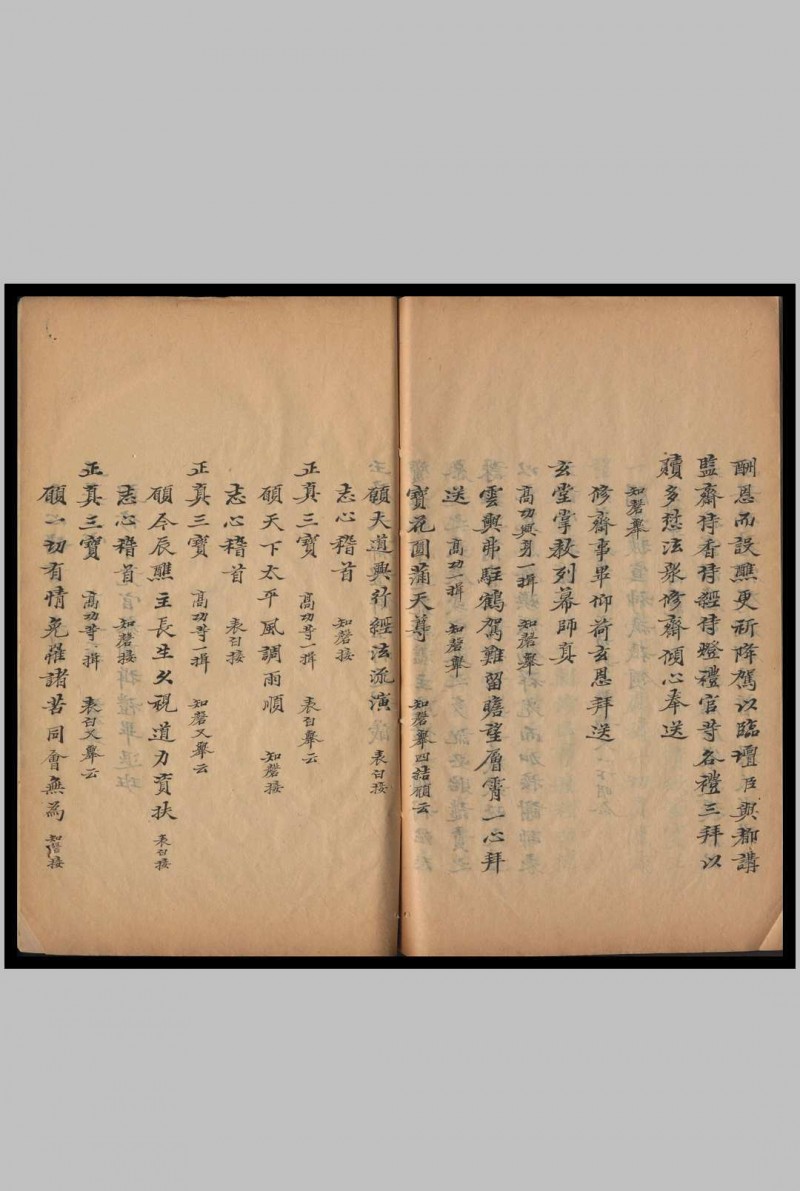 酬恩而設醮更祈降駕以臨壇臣與都講
監齋侍香侍經侍燈禮官等各禮三拜以
贖多愆法眾修齋傾心奉送
知磬舉
修齋事畢仰荷玄恩拜送
玄堂掌教列幕師真
高功與身一揖 知磬舉
雲輿弗駐鶴駕難留瞻望層霄一心拜
送 高功一揖 知磬舉
寶花圓蒲天尊 知磬舉四結願云
願大道興行經法流演 表白接
志心稽首 知磬接
正真三寶 高功等一揖 表白舉云
願天下太平風調雨順 知磬接
志心稽首 表白接
正真三寶 高功等一揖 知磬又舉云
願今辰醮主長生久視道力資扶 表白接
志心稽首 知磬接
正真三寶 高功等一揖 表白又舉云
願一切有情免罹諸苦同會無為 知磬接